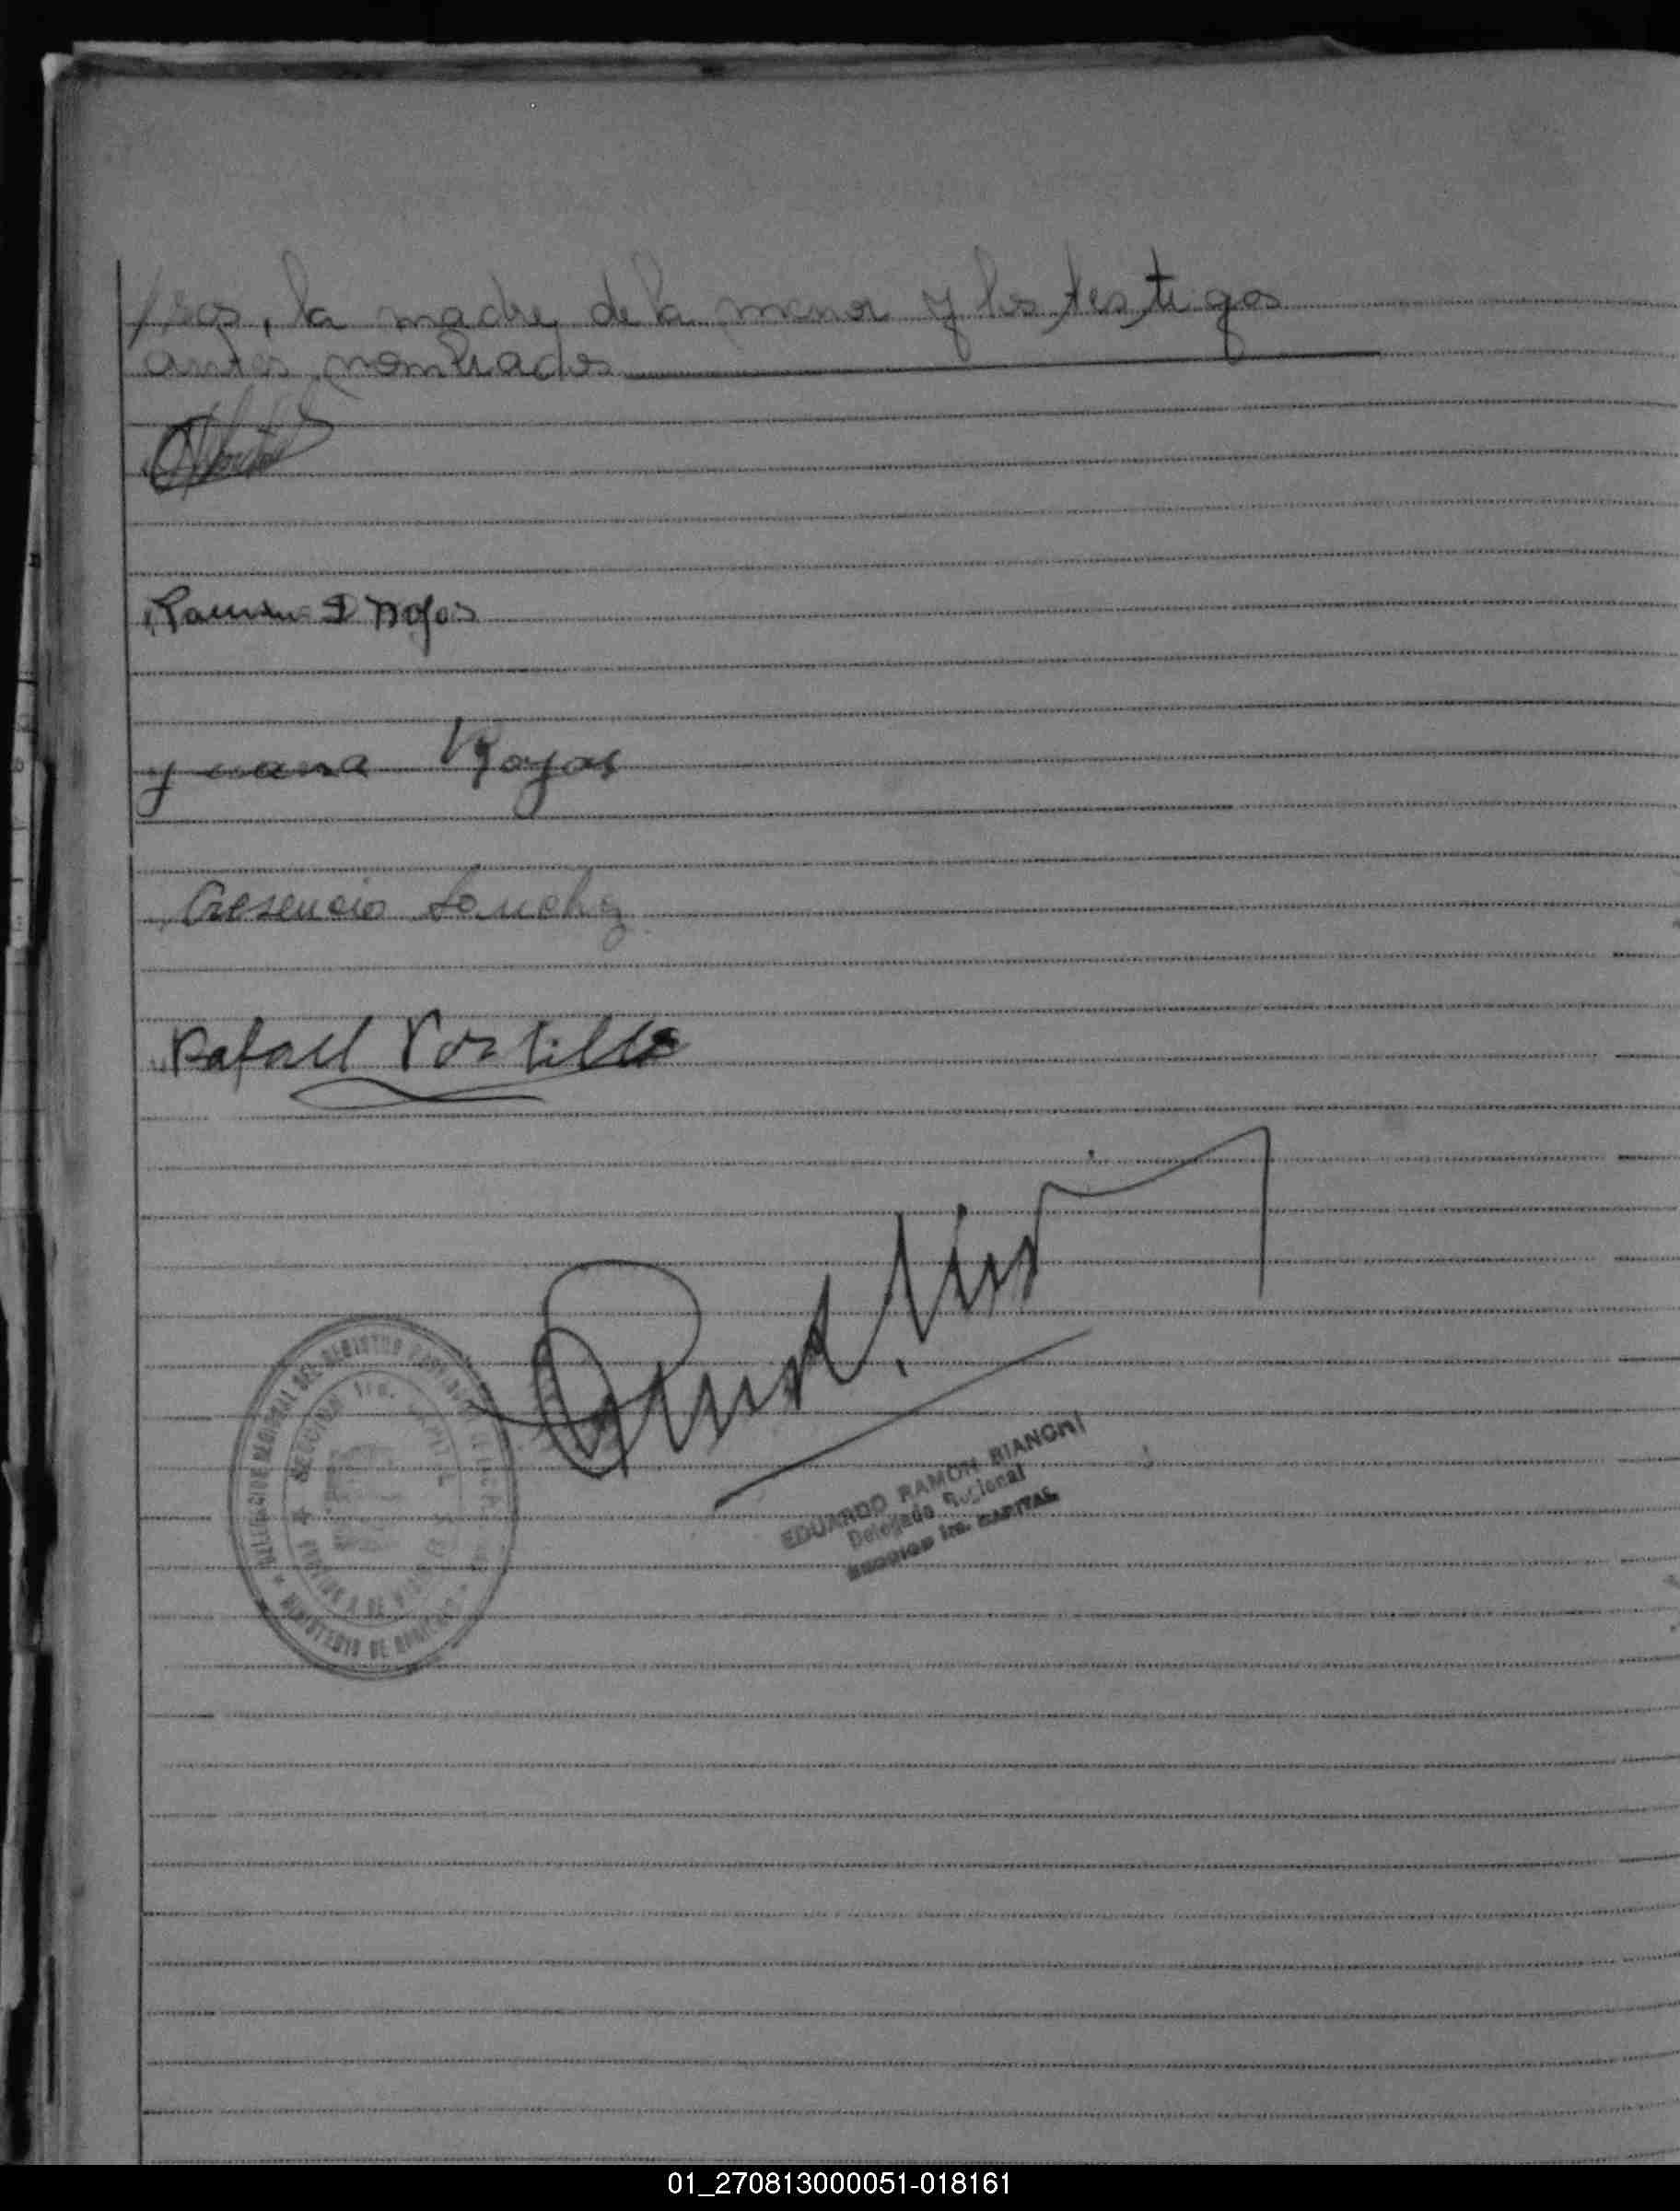 /sos, la madre de la menor y los testigos
antes nombrados
Ramon I Rojas
Juana Rojas
Cresencio Sanchez
Rafael Portillo
DELEGACION REGIONAL DEL REGISTRO
SECCION 1ra.
MINISTERIO DE
EDUARDO RAMON BIANCHI
Delegado Regional
SECCION 1ra. CAPITAL
01_270813000051-018161